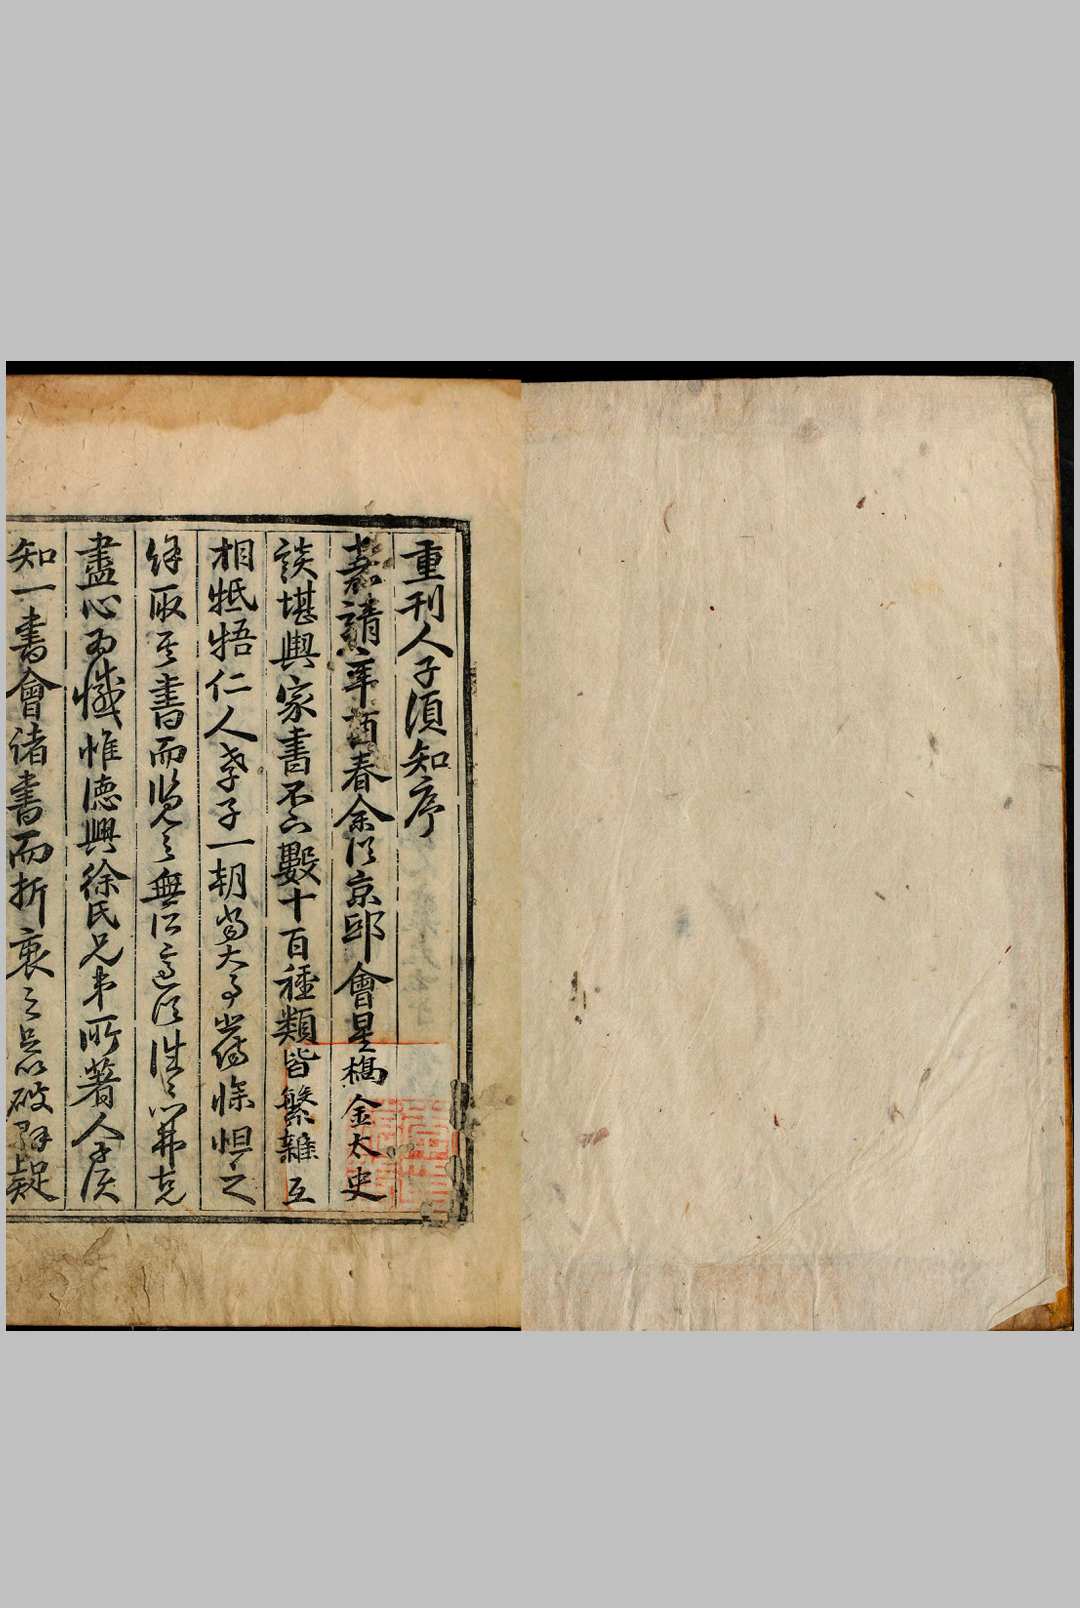 重刊人子須知序
嘉靖辛酉春余從京邸會星橋金太史
談堪輿家書不下數十百種類皆繁雜互
相牴牾仁人孝子一朝當大事慘怛之
取其書而覽之無所適從往往弗克
盡心為憾惟德興徐氏兄弟所著人子須
知一書會諸書而折衷之足以破疑